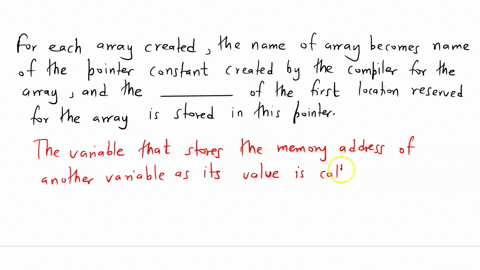 For each array created, the name of array becomes name
of the pointer constant created by the compiler for the
array, and the ________ of the first location reserved
for the array is stored in this pointer.
The variable that stores the memory address of
another variable as its value is cal